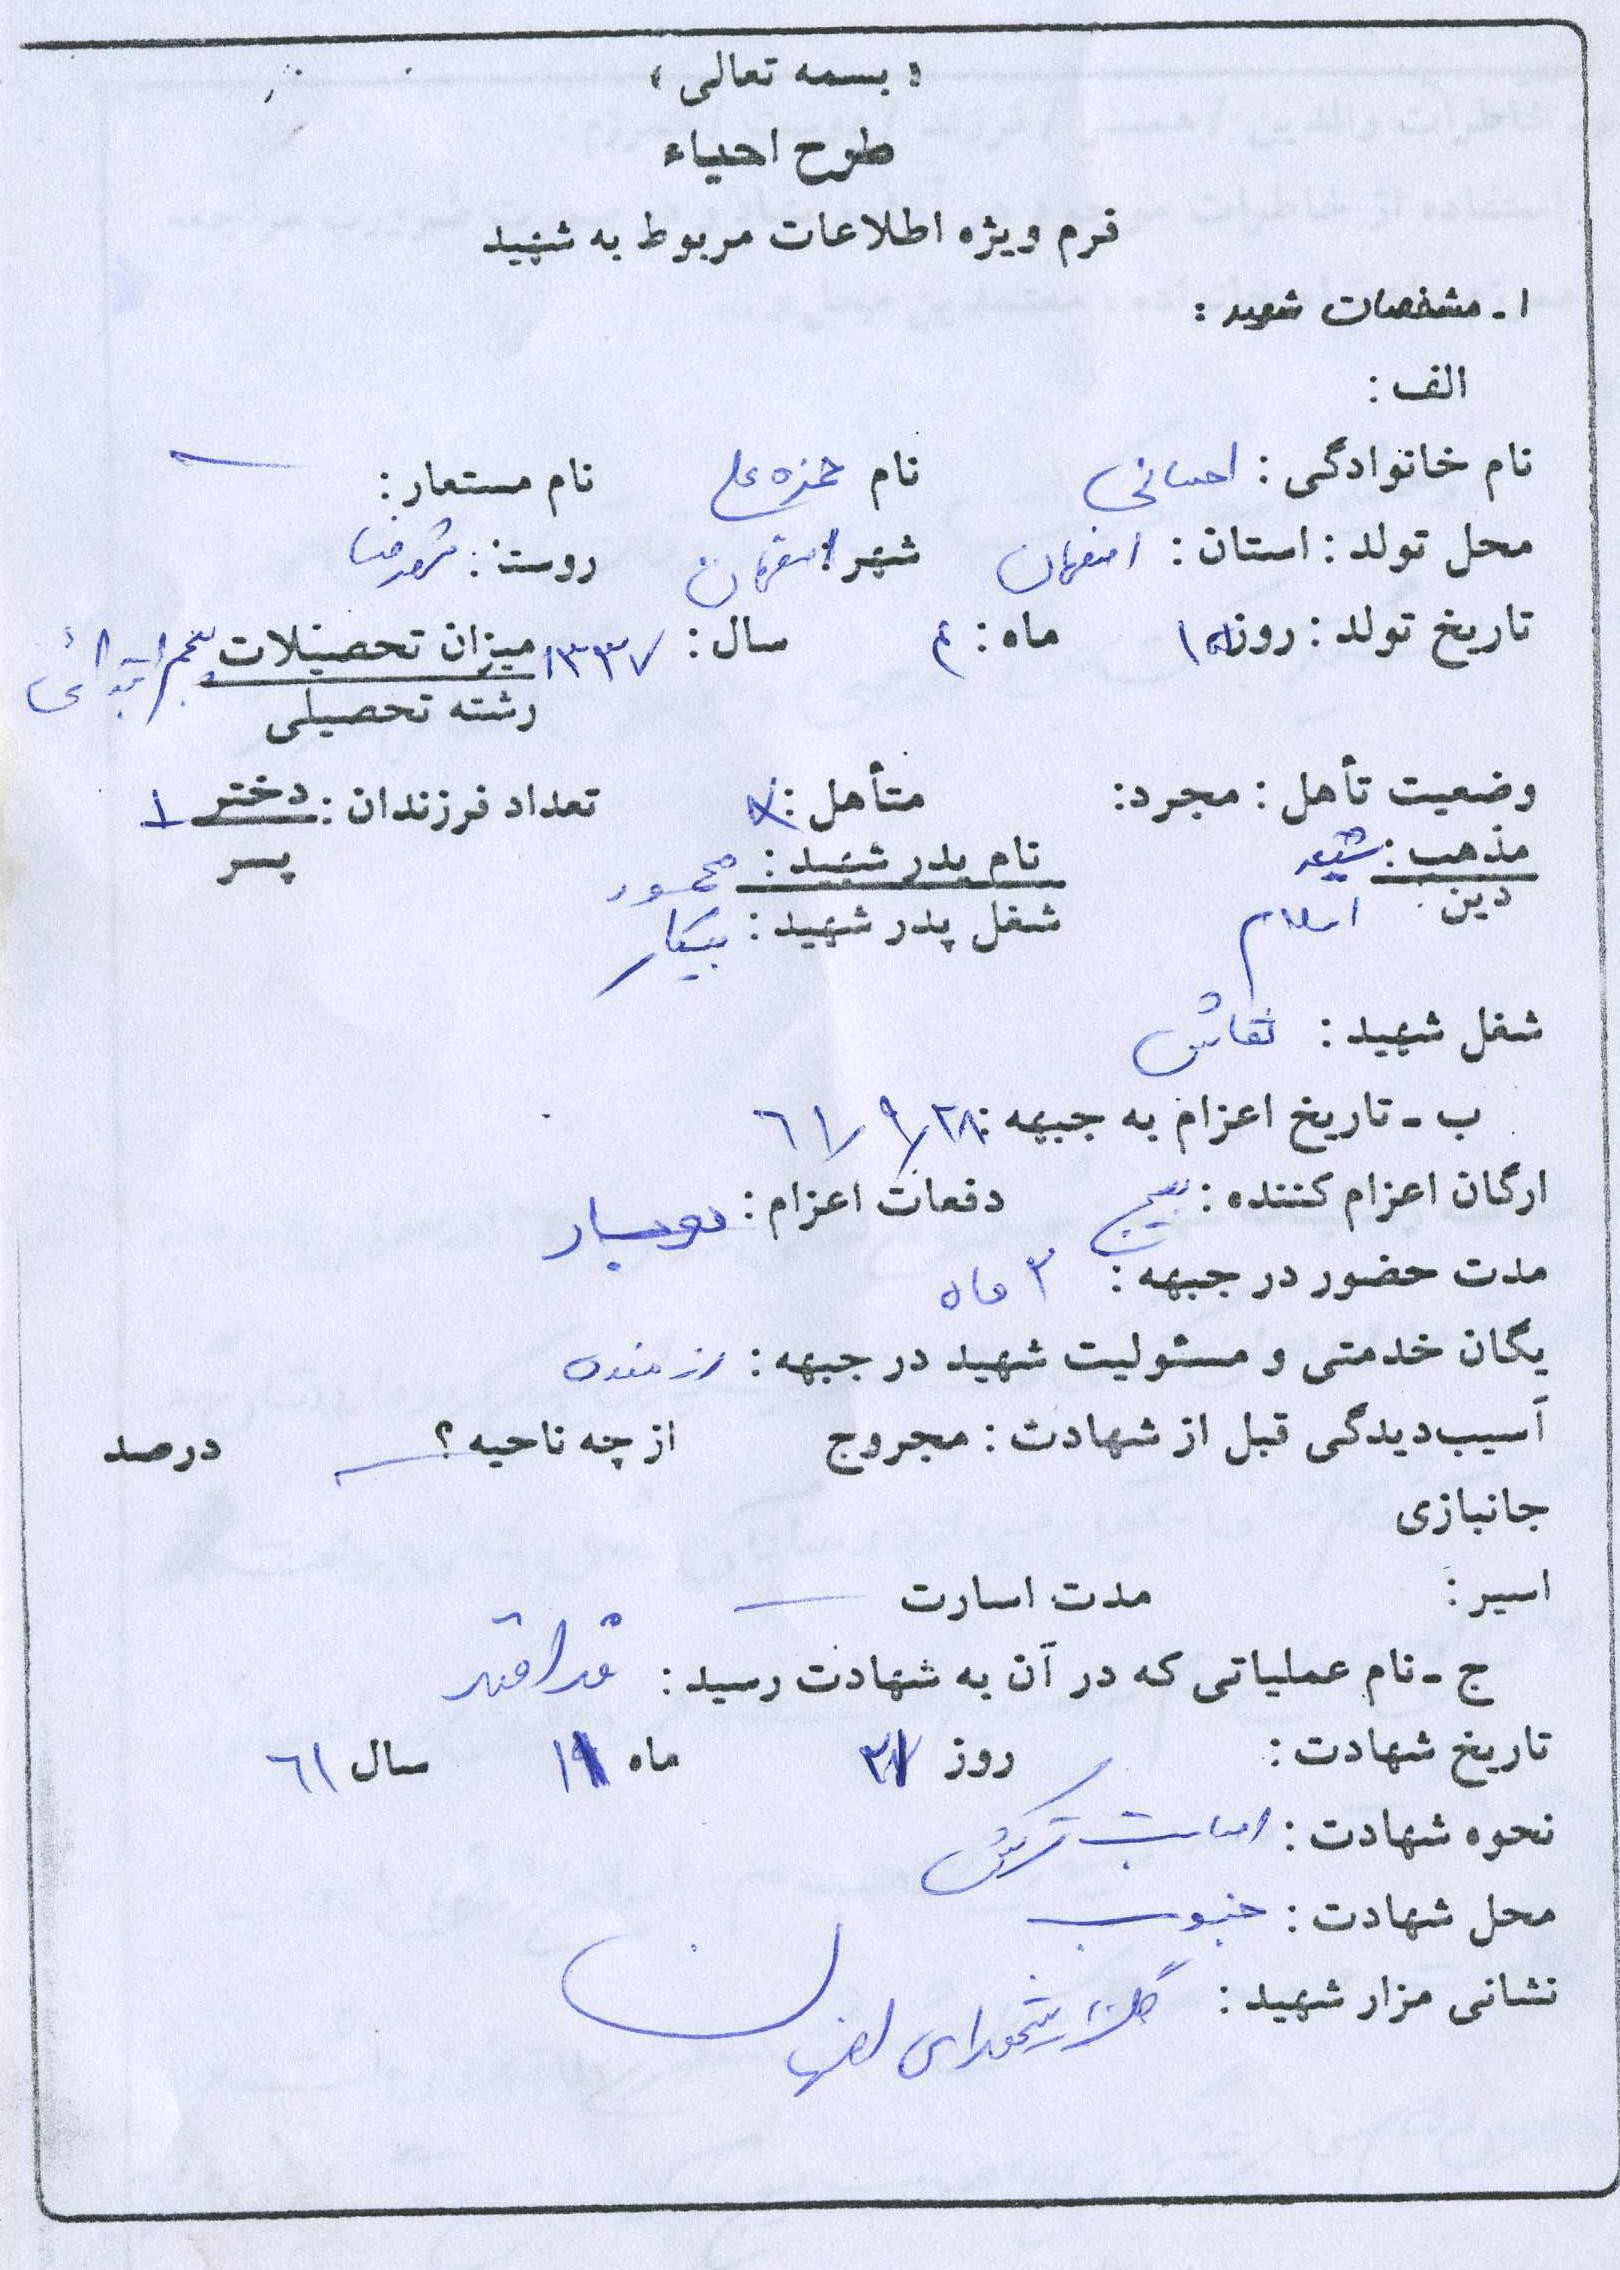 « بسمه تعالی »
طرح احیاء
فرم ویژه اطلاعات مربوط به شهید
۱ـ مشخصات شهید :
الف :
نام خانوادگی : احسانی نام حمزه علی نام مستعار :
محل تولد : استان : اصفهان شهر : اصفهان روستا : شهرضا
تاریخ تولد : روز ماه : ۴ سال : ۱۳۳۷ میزان تحصیلات پنجم ابتدائی
رشته تحصیلی
وضعیت تأهل : مجرد : متأهل : x تعداد فرزندان : دختر ۱
پسر
مذهب : شیعه نام پدر شهید : محمود
دین اسلام شغل پدر شهید : بیکار
شغل شهید : نقاش
ب ـ تاریخ اعزام به جبهه : ۶۱/۹/۲۸
ارگان اعزام کننده : بسیج دفعات اعزام : دوبار
مدت حضور در جبهه : ۳ ماه
یگان خدمتی و مسئولیت شهید در جبهه : رزمنده
آسیب‌دیدگی قبل از شهادت : مجروح از چه ناحیه ؟ درصد
جانبازی
اسیر : مدت اسارت
ج ـ نام عملیاتی که در آن به شهادت رسید :
تاریخ شهادت : روز ماه سال ۶۱
نحوه شهادت : اصابت ترکش
محل شهادت : جنوب
نشانی مزار شهید : گلزار شهدای اصفهان